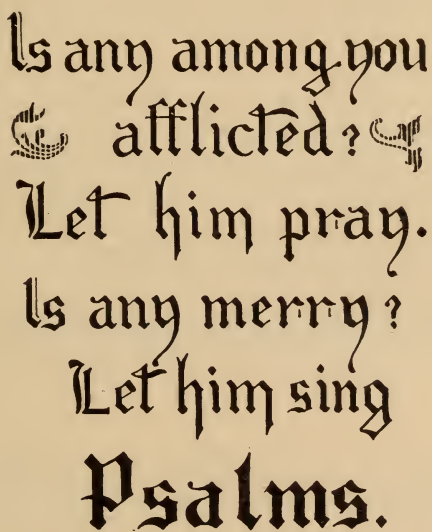 Is any among you
afflicted?
Let him pray.
Is any merry?
Let him sing
Psalms.